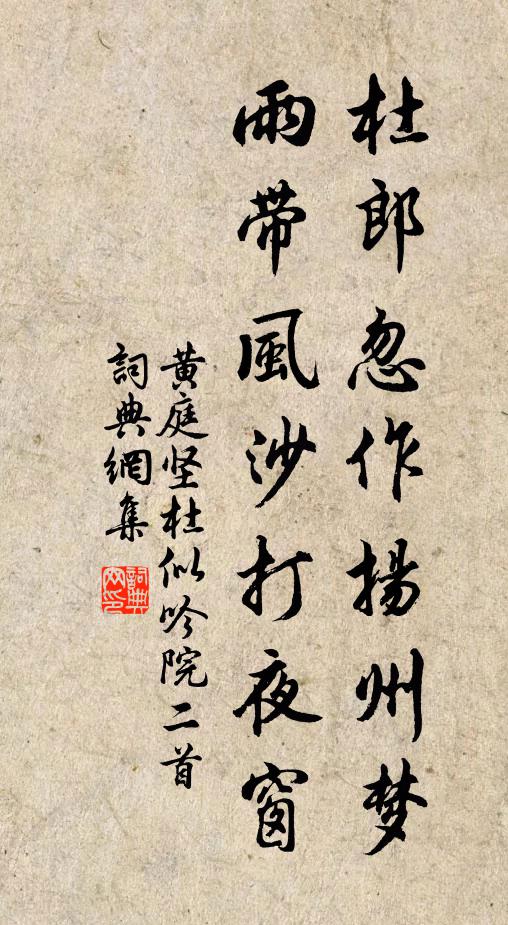 杜郎忽作揚州梦
雨带風沙打夜窗
黄庭坚杜似吟院二首
詞典網集
詞典網印